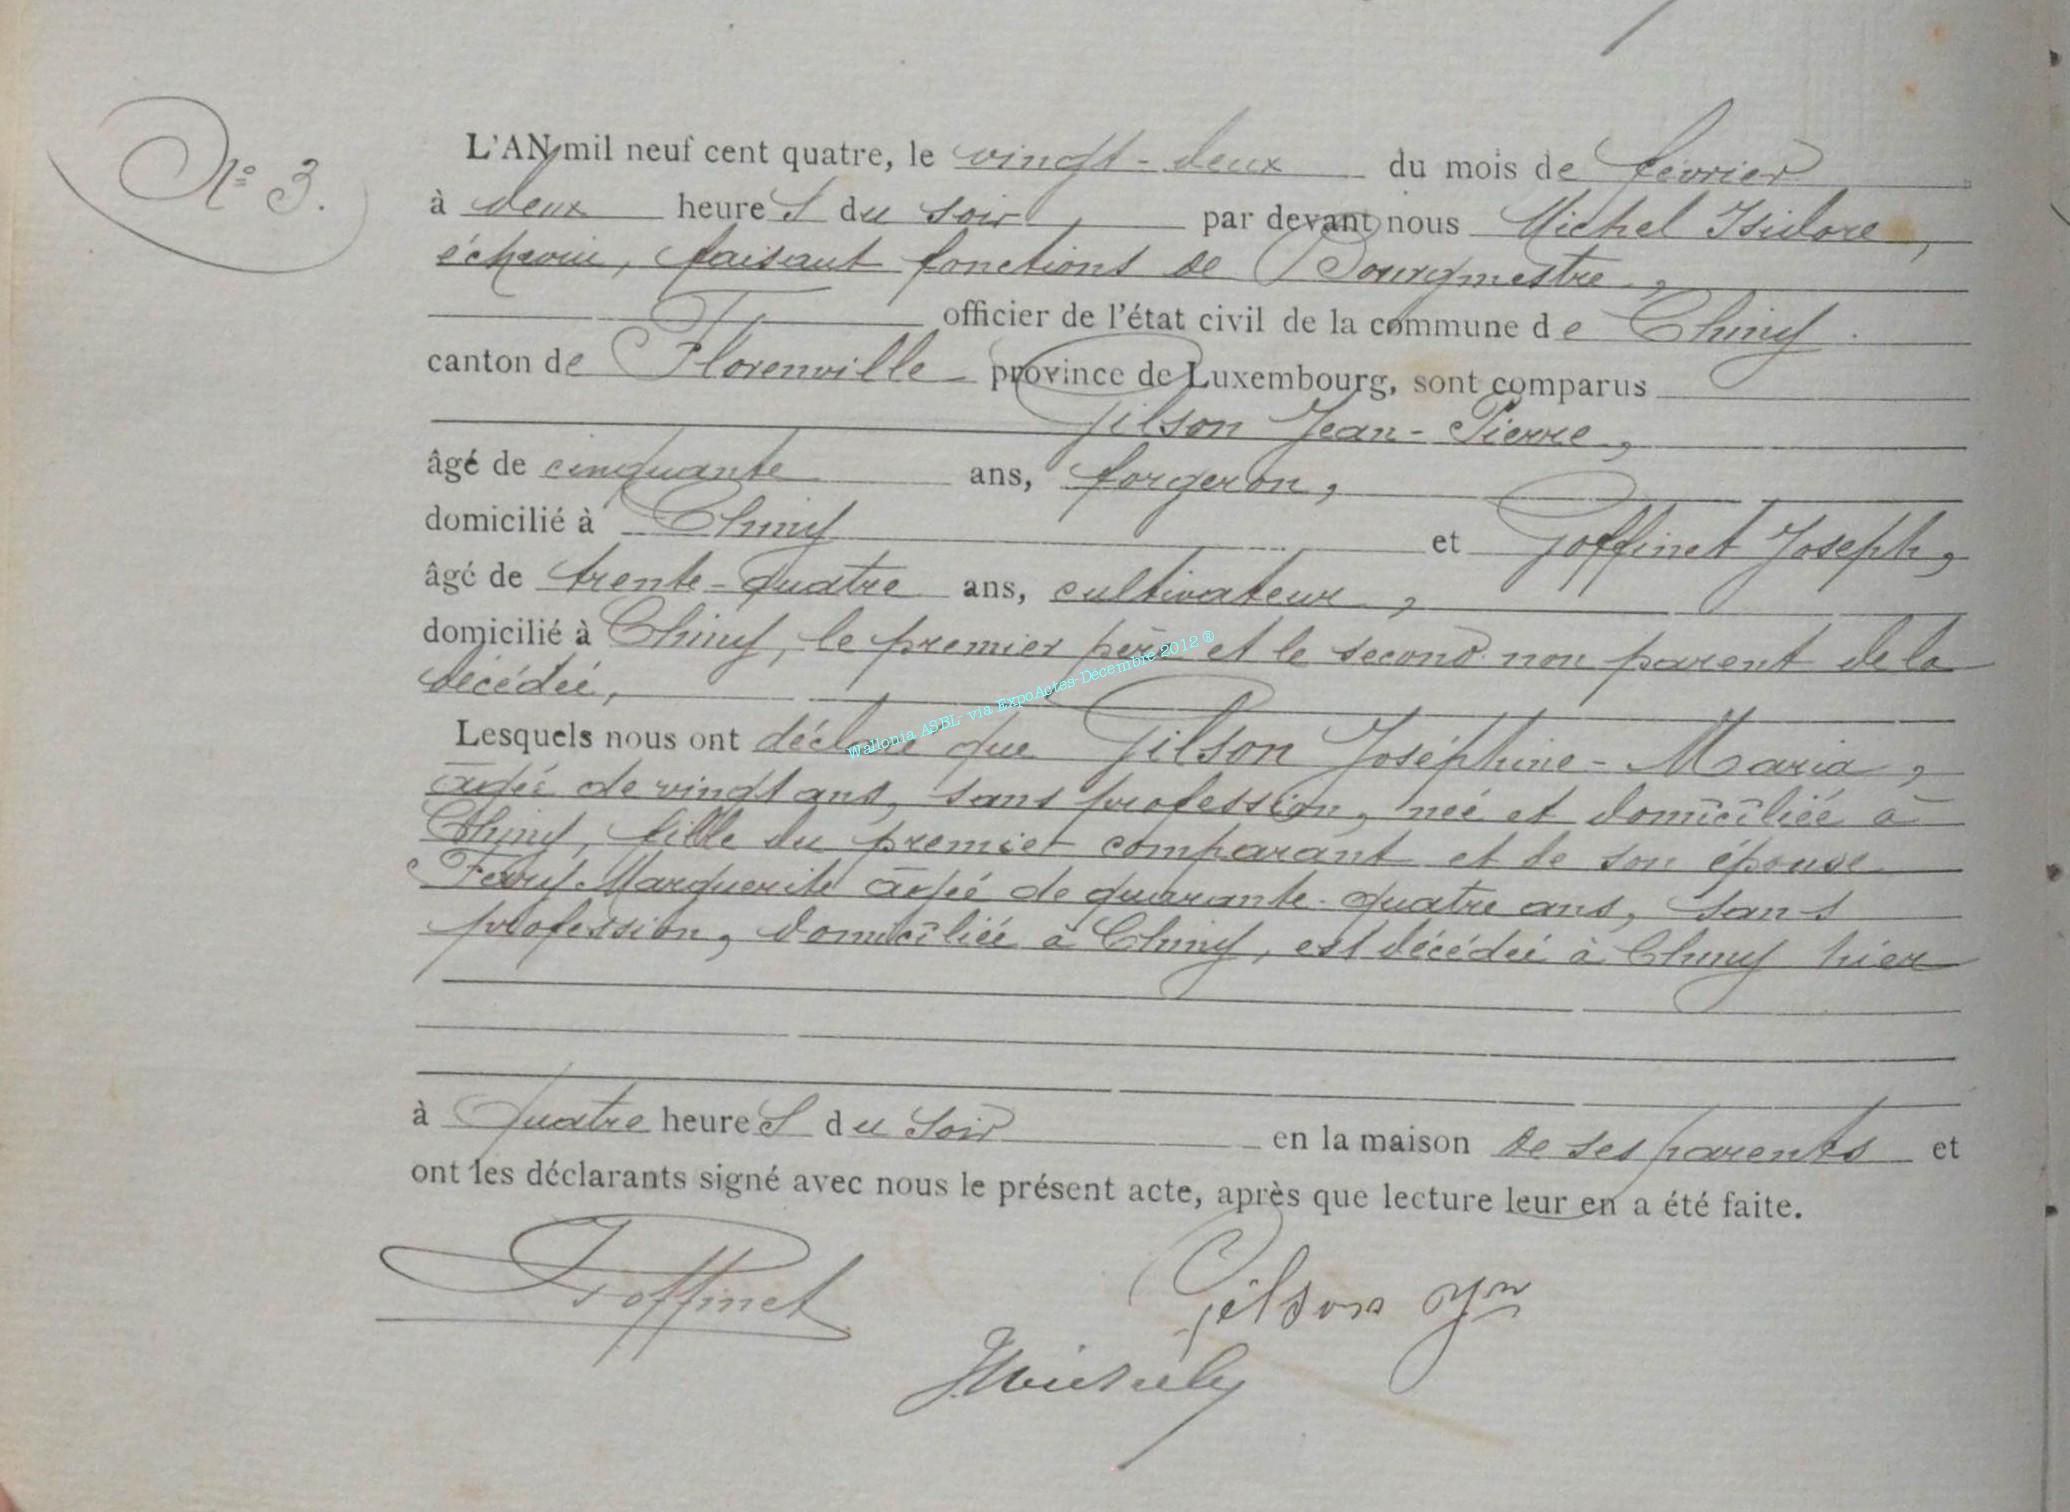 N° 3.
L'AN mil neuf cent quatre, le vingt-deux du mois de février
à deux heures du soir, par devant nous Michel Isidore,
échevin, faisant fonctions de Bourgmestre,
officier de l'état civil de la commune de Chiny.
canton de Florenville province de Luxembourg, sont comparus
Gilson Jean-Pierre,
âgé de cinquante ans, forgeron,
domicilié à Chiny et Goffinet Joseph,
âgé de trente-quatre ans, cultivateur,
domicilié à Chiny, le premier père et le second non parent de la
décédée,
Wallonia ASBL- via ExpoActes-Decembre 2012 ®
Lesquels nous ont déclaré que Gilson Joséphine-Maria,
âgée de vingt ans, sans profession, née et domiciliée à
Chiny, fille du premier comparant et de son épouse
Marguerite âgée de quarante-quatre ans, sans
profession, domiciliée à Chiny, est décédée à Chiny hier
à quatre heures du soir en la maison de ses parents et
ont les déclarants signé avec nous le présent acte, après que lecture leur en a été faite.
Goffinet
Gilson